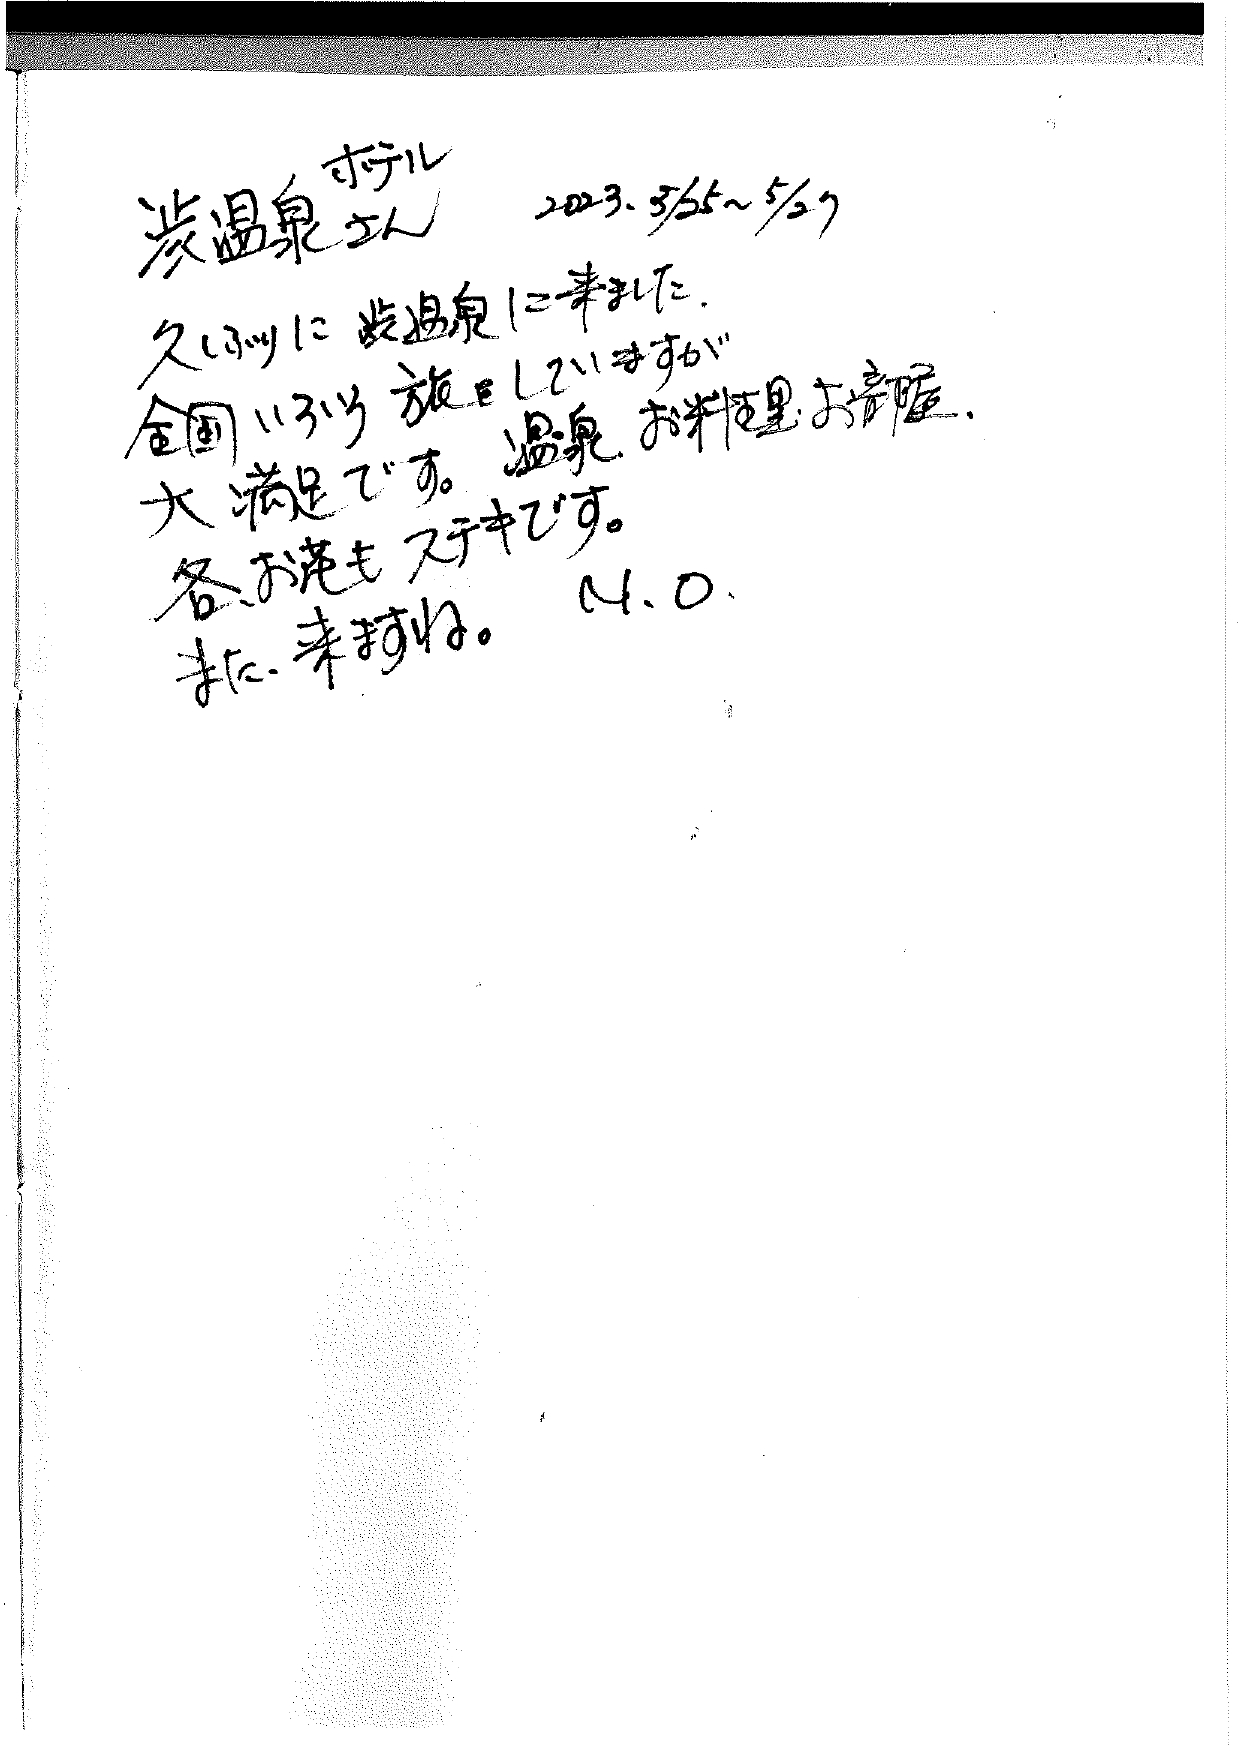 渋温泉ホテルさん 2023. 5/25～5/27
久しぶりに渋温泉に来ました.
全国いろいろ旅をしていますが
温泉、お料理、お部屋、
大満足です。
各、お花もステキです。
また、来ますね。 M.O.